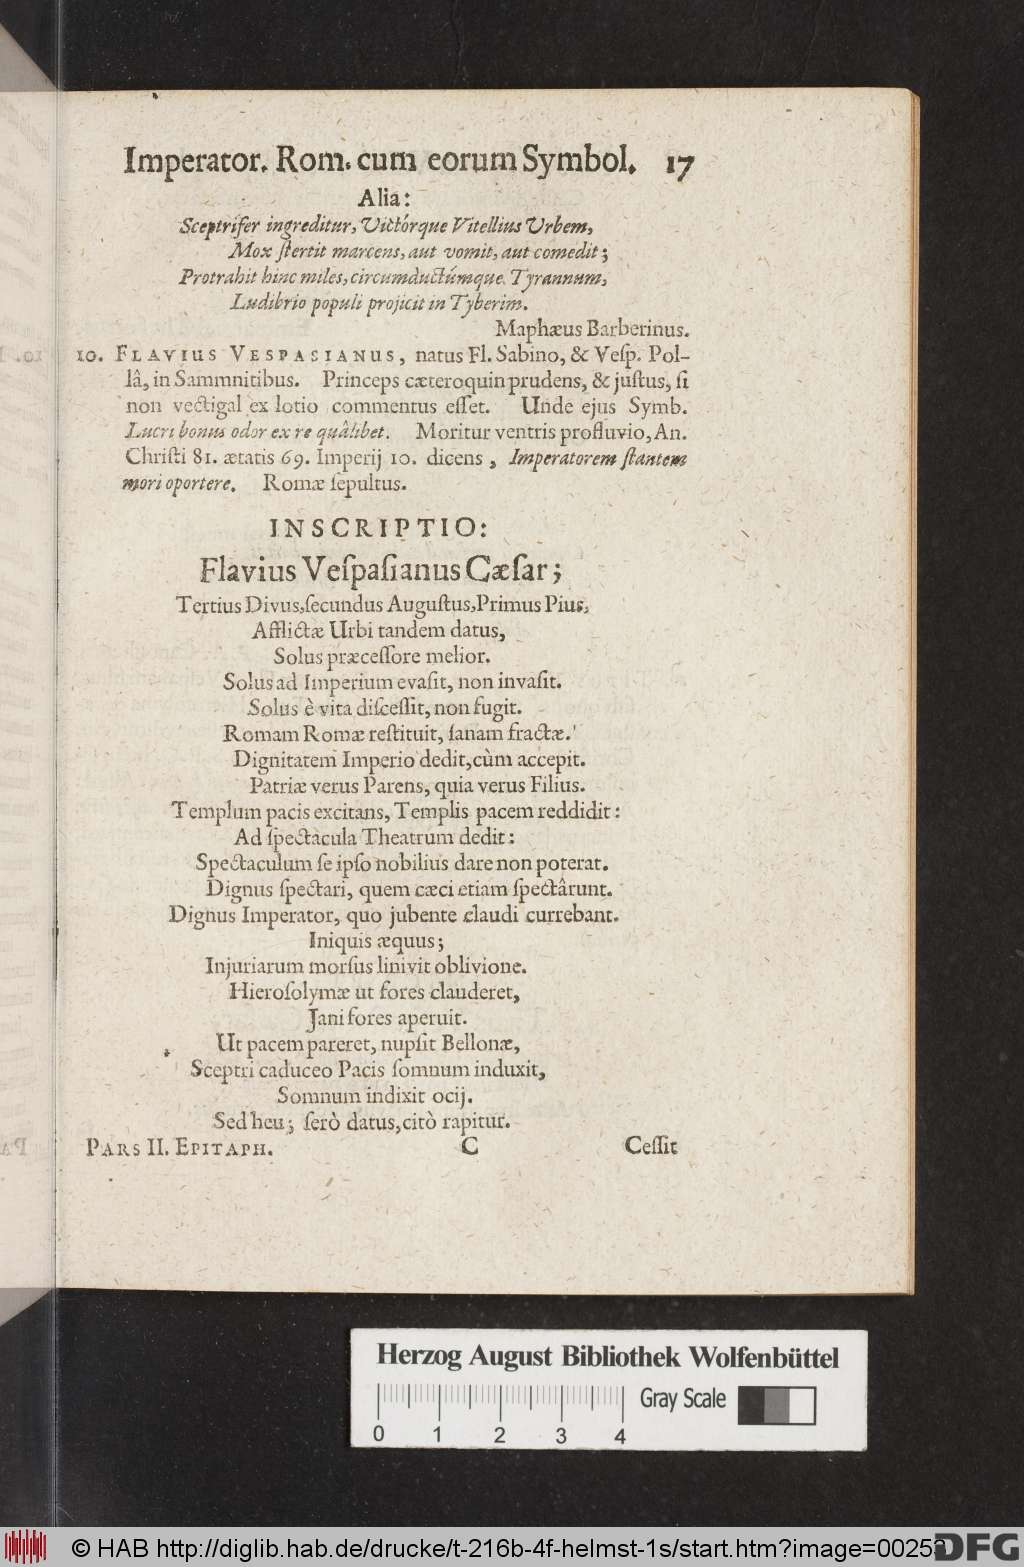 Imperator. Rom. cum eorum Symbol. 17
Alia:
Sceptrifer ingreditur, Victórque Vitellius Urbem,
Mox ſtertit marcens, aut vomit, aut comedit;
Protrahit hinc miles, circumductúmque Tyrannum,
Ludibrio populi projicit in Tyberim.
Maphæus Barberinus.
10. FLAVIUS VESPASIANUS, natus Fl. Sabino, & Veſp. Pol-
lâ, in Sammnitibus. Princeps cæteroquin prudens, & juſtus, ſi
non vectigal ex lotio commentus eſſet. Unde ejus Symb.
Lucri bonus odor ex re quâlibet. Moritur ventris profluvio, An.
Chriſti 81. ætatis 69. Imperij 10. dicens, Imperatorem ſtantem
mori oportere. Romæ ſepultus.
INSCRIPTIO:
Flavius Veſpaſianus Cæſar;
Tertius Divus, ſecundus Auguſtus, Primus Pius,
Afflictæ Urbi tandem datus,
Solus præceſſore melior.
Solus ad Imperium evaſit, non invaſit.
Solus è vita diſceſſit, non fugit.
Romam Romæ reſtituit, ſanam fractæ.
Dignitatem Imperio dedit, cùm accepit.
Patriæ verus Parens, quia verus Filius.
Templum pacis excitans, Templis pacem reddidit:
Ad ſpectacula Theatrum dedit:
Spectaculum ſe ipſo nobilius dare non poterat.
Dignus ſpectari, quem cæci etiam ſpectârunt.
Dignus Imperator, quo jubente claudi currebant.
Iniquis æquus;
Injuriarum morſus linivit oblivione.
Hieroſolymæ ut fores clauderet,
Jani fores aperuit.
Ut pacem pareret, nupſit Bellonæ,
Sceptri caduceo Pacis ſomnum induxit,
Somnum indixit ocij.
Sed heu; ſerò datus, citò rapitur.
PARS II. EPITAPH. C Ceſſit
Herzog August Bibliothek Wolfenbüttel
Gray Scale
0 1 2 3 4
© HAB http://diglib.hab.de/drucke/t-216b-4f-helmst-1s/start.htm?image=00253
DFG